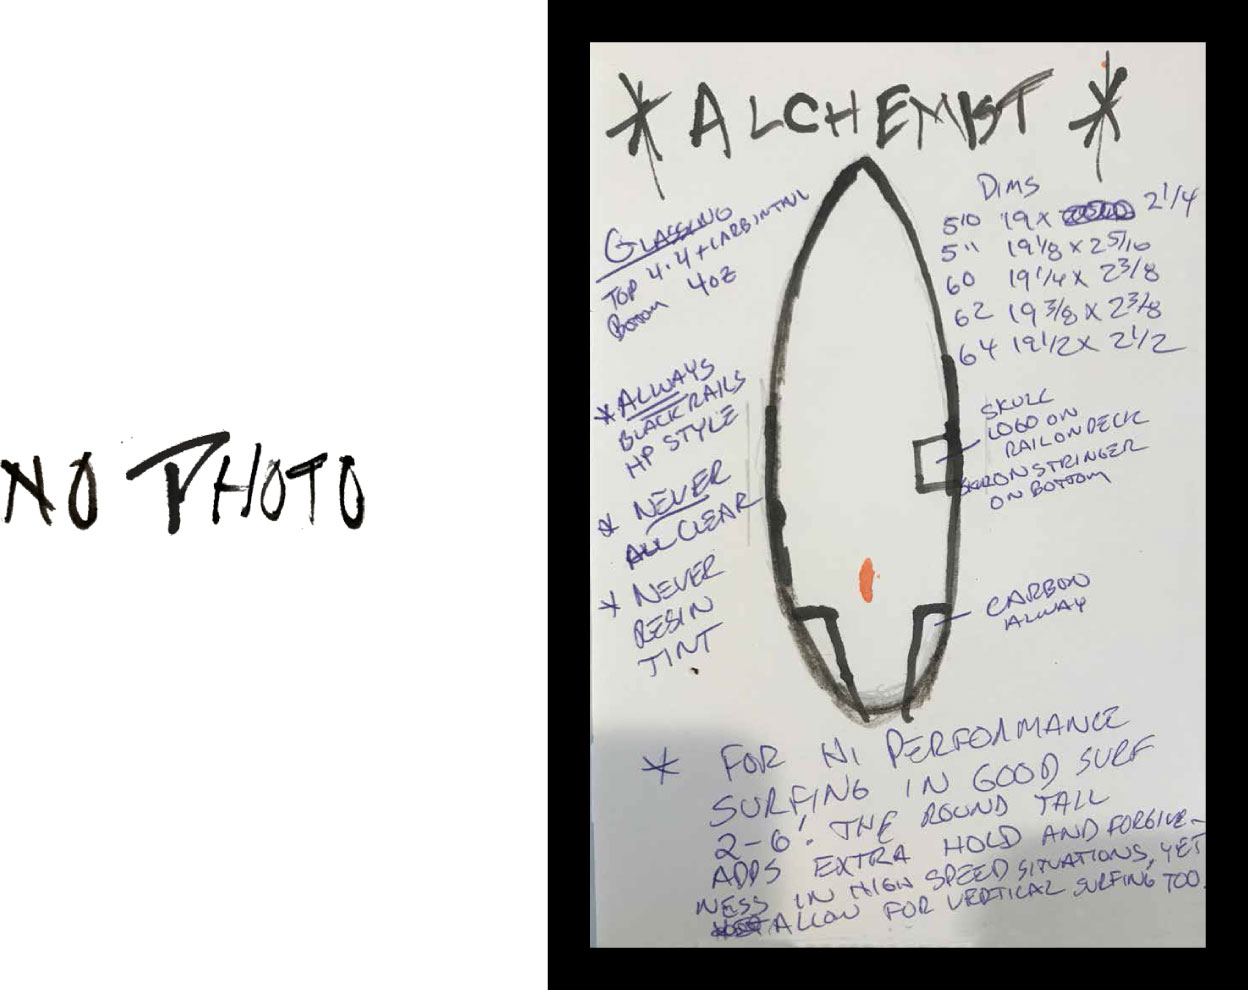 NO PHOTO
* ALCHEMIST *
GLASSING
TOP 4·4 + CARB IN TAIL
BOTTOM 4OZ
* ALWAYS
BLACK RAILS
HP STYLE
* NEVER
ALL CLEAR
* NEVER
RESIN
TINT
DIMS
5'10 19 X 2 1/4
5'11 19 1/8 X 2 5/16
60 19 1/4 X 2 3/8
62 19 3/8 X 2 3/8
64 19 1/2 X 2 1/2
SKULL
LOGO ON
RAIL ON DECK
ON STRINGER
ON BOTTOM
CARBON
ALWAY
* FOR HI PERFORMANCE
SURFING IN GOOD SURF
2-6'. THE ROUND TAIL
ADDS EXTRA HOLD AND FORGIVE-
NESS IN HIGH SPEED SITUATIONS, YET
ALLOW FOR VERTICAL SURFING TOO.